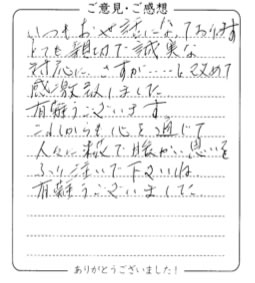 ご意見・ご感想
いつもお世話になっております
とても親切で誠実な
対応に、さすが……と改めて
感激致しました。
有難うございます。
これからも心を通じて
人々に 暖かい思いを
下さいね
有難うございました。
ありがとうございました！